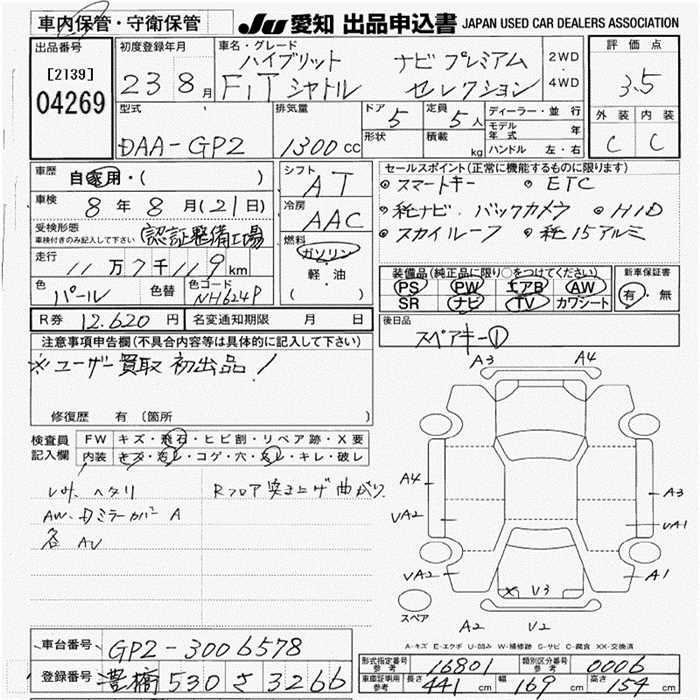 車内保管・守衛保管
JU 愛知 出品申込書 JAPAN USED CAR DEALERS ASSOCIATION
出品番号
[2139]
04269
初度登録年月
23 8月
車名・グレード
ハイブリット ナビプレミアム
FIT シャトル セレクション
2WD
4WD
評価点
3.5
外装 内装
C C
型式
DAA-GP2
排気量
1300 cc
ドア 5
形状
定員 5人
積載 kg
ディーラー・並行
モデル年式 年
ハンドル 左・右
車歴 自家用・( )
車検 8年8月(21日)
受検形態
車検付きのみ記入して下さい 認証整備工場
走行 11万7千119km
色 パール 色替 色コード NH624P
シフト AT
冷房 AAC
燃料
ガソリン
軽・油
( )
セールスポイント(正常に機能するものに限ります)
スマートキー ETC
純ナビ.バックカメラ HID
スカイルーフ 純15アルミ
装備品(純正品に限り○をつけてください)
PS PW エアB AW
SR ナビ TV カワシート
新車保証書
有・無
R券 12.620円 名変通知期限 月 日
後日品
スペアキー①
注意事項申告欄(不具合内容等は具体的に記入して下さい)
※ユーザー買取 初出品!
修復歴 有(箇所
検査員記入欄
FW キズ・飛石・ヒビ割・リペア跡・X要
内装 キズ・汚レ・コゲ・穴・スレ・キレ・破レ
ヘタリ Rフロア突き上げ曲がり
AW. ミラーカバー A
各 AU
A3 A4
A4 A3
UA2 UA1
UA2 V3 A1
A2 U2
スペア
A-キズ E-エクボ U-凹み W-補修跡 S-サビ C-腐食 XX-交換済
車台番号 GP2-3006578
登録番号 豊橋 530 さ 3266
形式指定番号 参考 16801 類別区分番号 参考 0006
車庫証明用 参考 長さ 441cm 幅 169cm 高さ 154cm